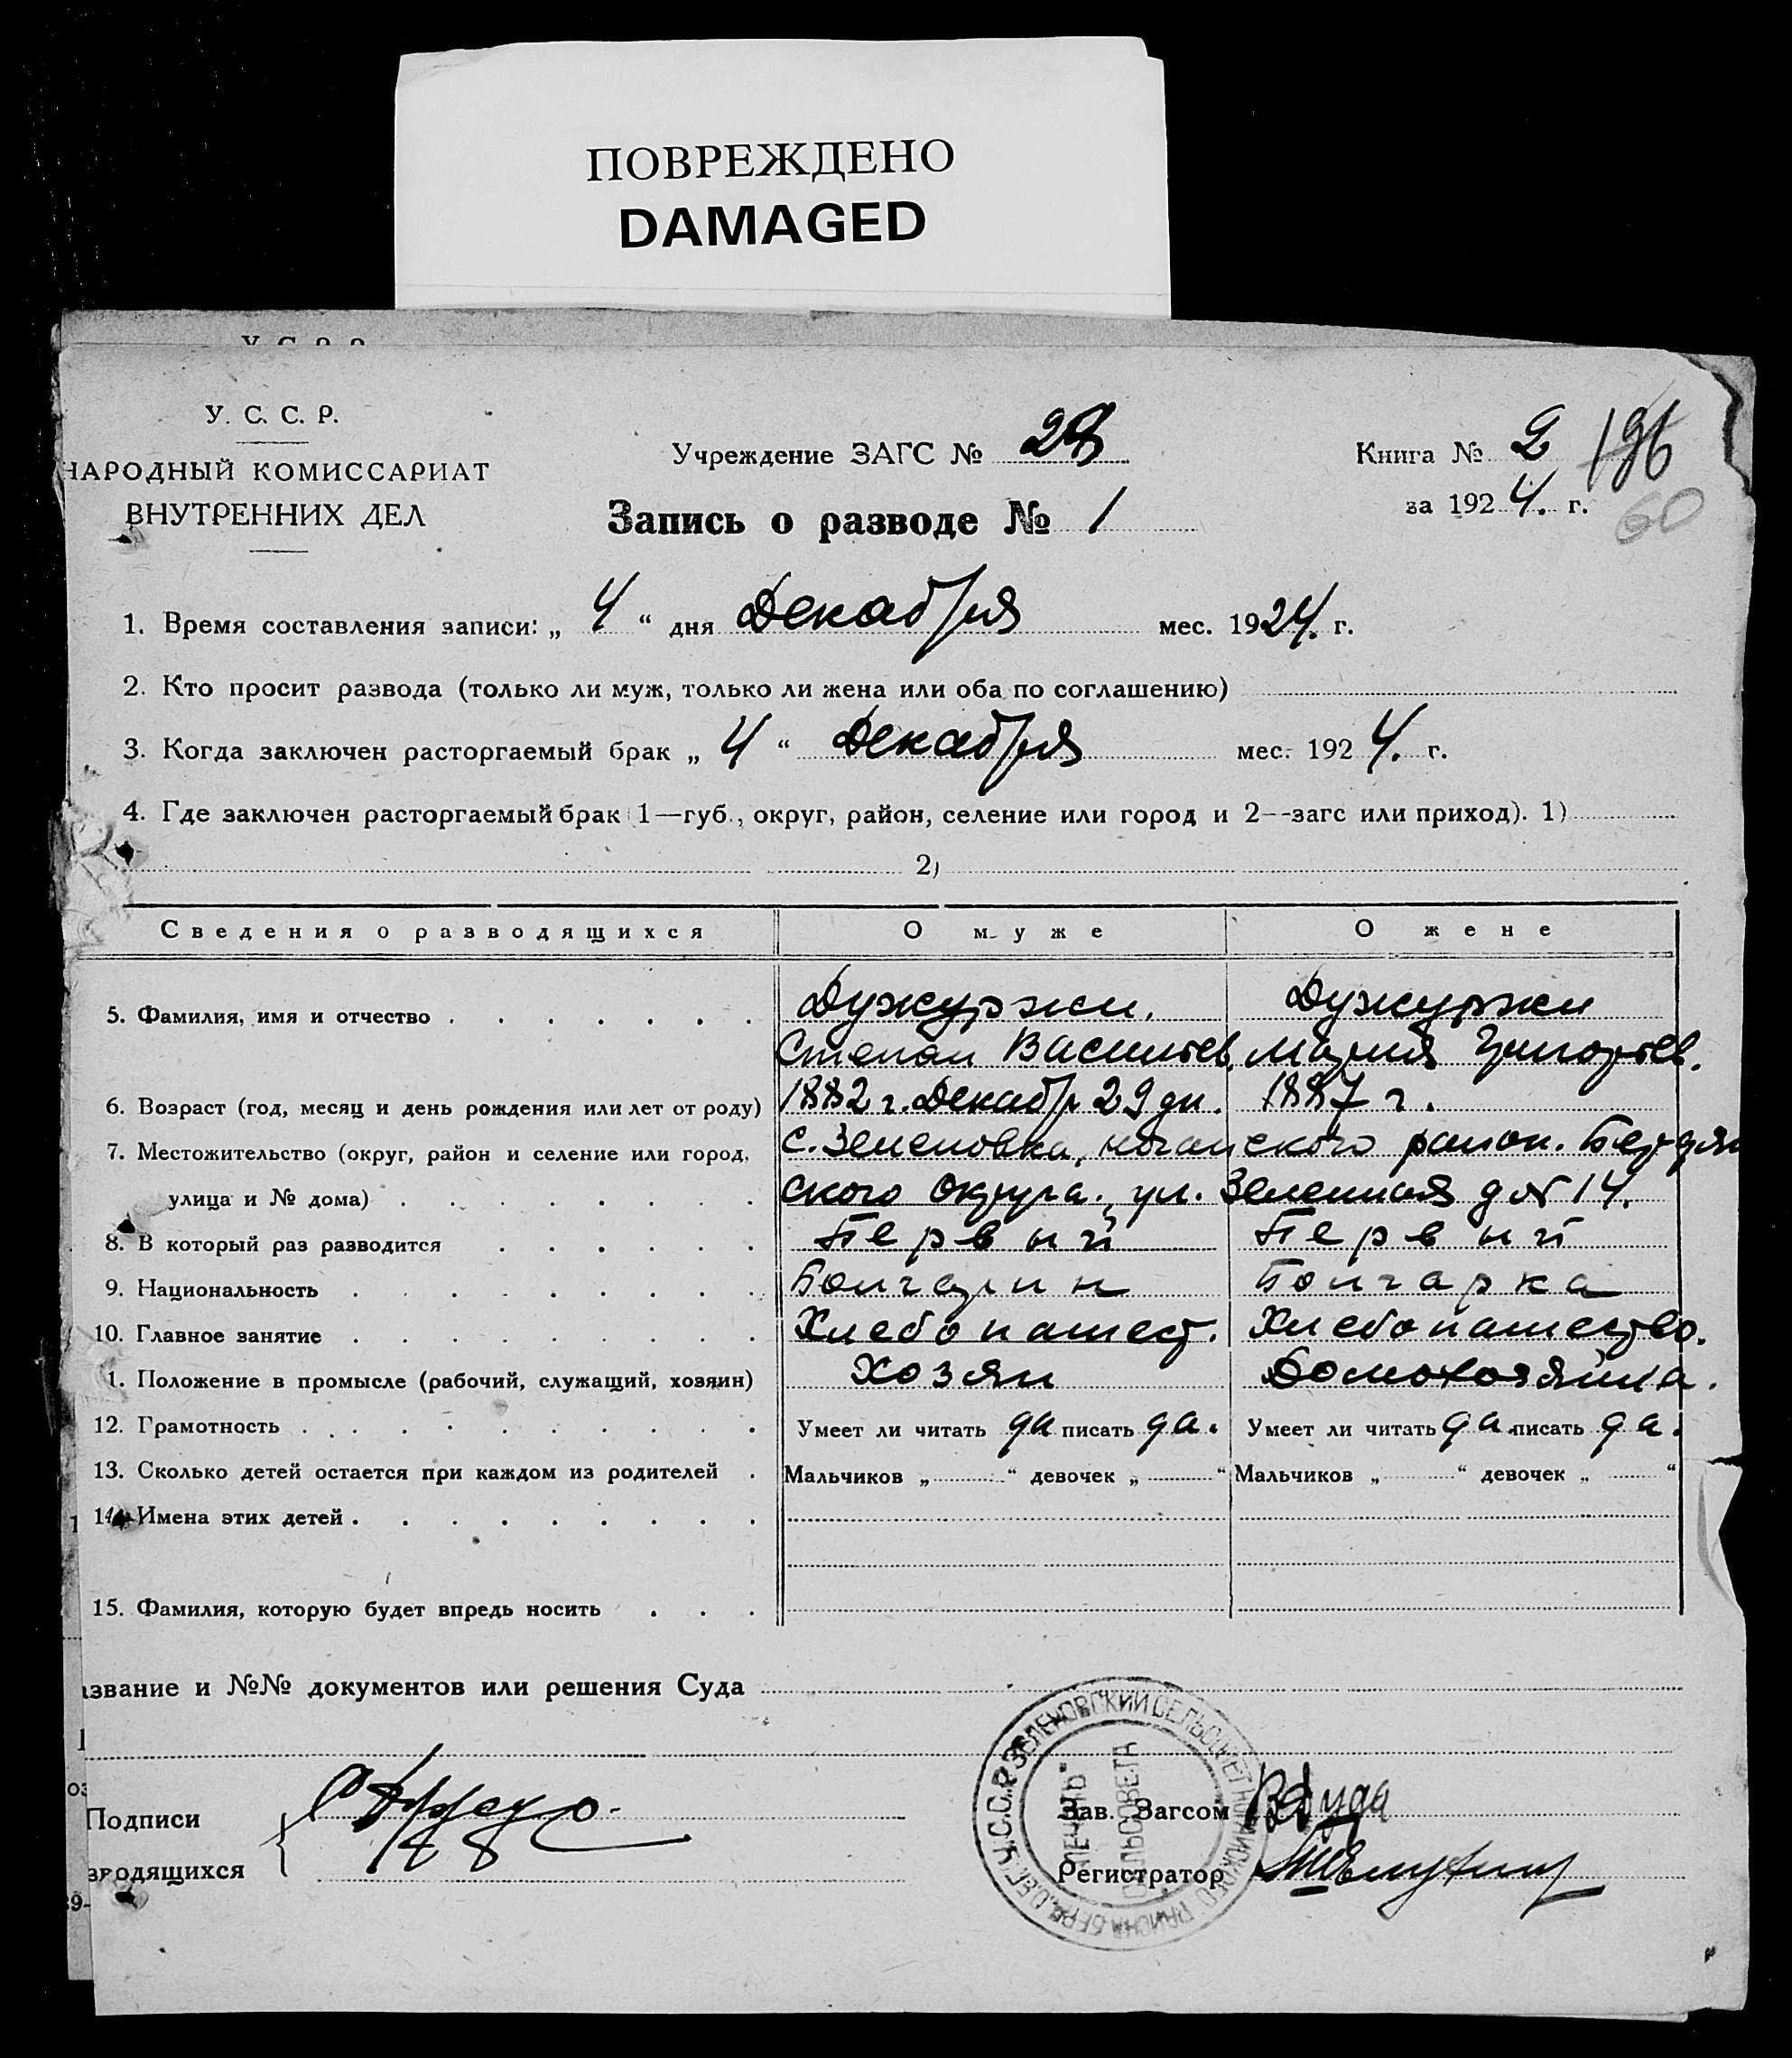 ПОВРЕЖДЕНО
DAMAGED
У. С. С. Р.
НАРОДНЫЙ КОМИССАРИАТ
ВНУТРЕННИХ ДЕЛ
Учреждение ЗАГС №
Книга № 2 196
за 1924. г. 60
Запись о разводе № 1
1. Время составления записи: „ 4 “ дня Декабря мес. 1924. г.
2. Кто просит развода (только ли муж, только ли жена или оба по соглашению)
3. Когда заключен расторгаемый брак „ 4 “ Декабря мес. 1924. г.
4. Где заключен расторгаемый брак (1—губ., округ, район, селение или город и 2—загс или приход). 1)
2)
Сведения о разводящихся О муже О жене
5. Фамилия, имя и отчество Дужуржи. Дужуржи
Степан Васильев. Мария Григорьев.
6. Возраст (год, месяц и день рождения или лет от роду) 1882 г. Декабр 29 дн. 1887 г.
7. Местожительство (округ, район и селение или город, с. Зеленовка, ногайского район. Бердян
улица и № дома) ского округа. ул. Зеленная д № 14.
8. В который раз разводится Первый Первый
9. Национальность Болгарин Болгарка
10. Главное занятие Хлебопашест. Хлебопашество.
1. Положение в промысле (рабочий, служащий, хозяин) Хозяин Домохозяйка.
12. Грамотность Умеет ли читать да писать да. Умеет ли читать да писать да.
13. Сколько детей остается при каждом из родителей Мальчиков „ “ девочек „ “ Мальчиков „ “ девочек „ “
14. Имена этих детей
15. Фамилия, которую будет впредь носить
азвание и №№ документов или решения Суда
Подписи
зводящихся
Зав. Загсом ВДуда
Регистратор
У.С.С.Р. ЗЕЛЕНОВСКИЙ СЕЛЬСОВЕТ НОГАЙСКОГО РАЙОНА
"ПЕЧАТЬ"
СЕЛЬСОВЕТА